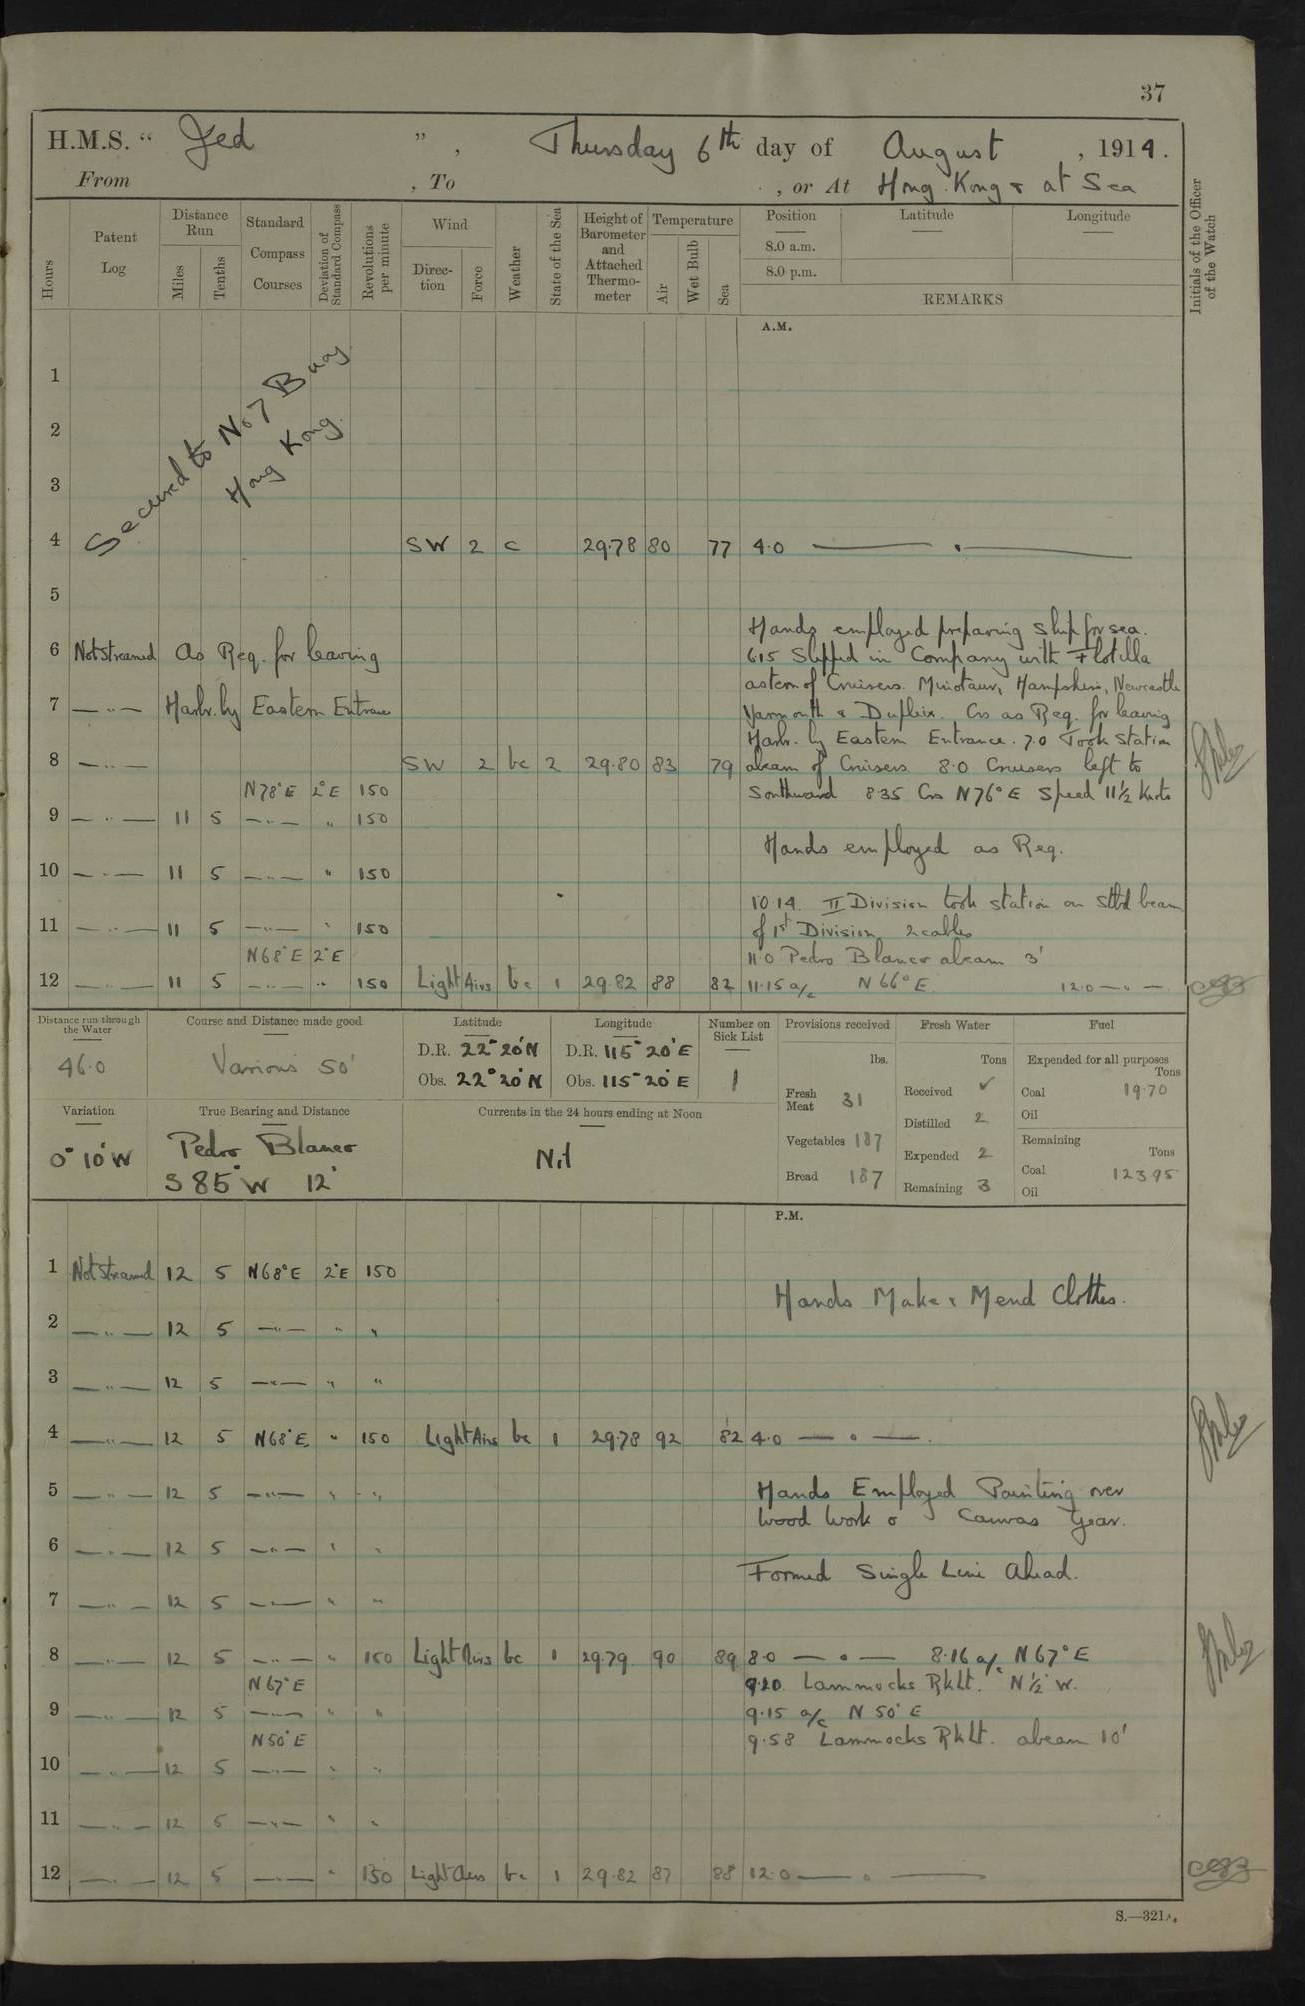 37
H.M.S. " Jed ", Thursday 6th day of August, 1914.
From , To , or At Hong Kong & at Sea
Hours
Patent Log
Distance Run
Miles
Tenths
Standard Compass Courses
Deviation of Standard Compass
Revolutions per minute
Wind
Direction
Force
Weather
State of the Sea
Height of Barometer and Attached Thermometer
Temperature
Air
Wet Bulb
Sea
Position
8.0 a.m.
8.0 p.m.
Latitude
Longitude
REMARKS
Initials of the Officer of the Watch
A.M.
Secured to No 7 Buoy
Hong Kong.
1
2
3
4 SW 2 c 29.78 80 77 4.0 — . —
5
Hands employed preparing ship for sea.
6 Not Streamed As Req. for leaving 6.15 Slipped in Company with Flotilla
astern of Cruisers. Minotaur, Hampshire, Newcastle
7 — " — Harbr. by Eastern Entrance Yarmouth & Dupleix. Cos as Req. for leaving
Harbr. by Eastern Entrance. 7.0 Took Station
8 — " — SW 2 bc 2 29.80 83 79 abeam of Cruisers 8.0 Cruisers left to
N78°E 2°E 150 Southward 8.35 Co N76°E Speed 11½ Knots
9 — " — 11 5 — " — " 150
Hands employed as Req.
10 — " — 11 5 — " — " 150
10.14. II Division took station on Stbd beam
11 — " — 11 5 — " — " 150 of 1st Division 2 cables
N68°E 2°E 11.0 Pedro Blanco abeam 3'
12 — " — 11 5 — " — " 150 Light Airs bc 1 29.82 88 82 11.15 a/c N66°E. 12.0 — " —
Distance run through the Water
46.0
Course and Distance made good
Various 50'
Latitude
D.R. 22°20'N
Obs. 22°20'N
Longitude
D.R. 115°20'E
Obs. 115°20'E
Number on Sick List
1
Provisions received
lbs.
Fresh Meat 31
Vegetables 187
Bread 187
Fresh Water
Tons
Received ✓
Distilled 2
Expended 2
Remaining 3
Fuel
Expended for all purposes
Tons
Coal 19.70
Oil
Remaining
Tons
Coal 123.95
Oil
Variation
0°10'W
True Bearing and Distance
Pedro Blanco
S85°W 12'
Currents in the 24 hours ending at Noon
Nil
P.M.
1 Not Streamed 12 5 N68°E 2°E 150
Hands Make & Mend Clothes.
2 — " — 12 5 — " — " "
3 — " — 12 5 — " — " "
4 — " — 12 5 N68°E " 150 Light Airs bc 1 29.78 92 82 4.0 — . —.
5 — " — 12 5 — " — " " Hands Employed Painting over
wood work & Canvas Gear.
6 — " — 12 5 — " — " "
Formed Single Line Ahead.
7 — " — 12 5 — " — " "
8 — " — 12 5 — " — " 150 Light Airs bc 1 29.79 90 89 8.0 — . — 8.16 a/c N67°E
N67°E 9.20. Lammocks Rk Lt. N½W.
9 — " — 12 5 — " — " " 9.15 a/c N50°E
N50°E 9.58 Lammocks Rk Lt. abeam 10'
10 — " — 12 5 — " — " "
11 — " — 12 5 — " — " "
12 — " — 12 5 — " — " 150 Light Airs bc 1 29.82 87 88 12.0 — . —
S.—321A.